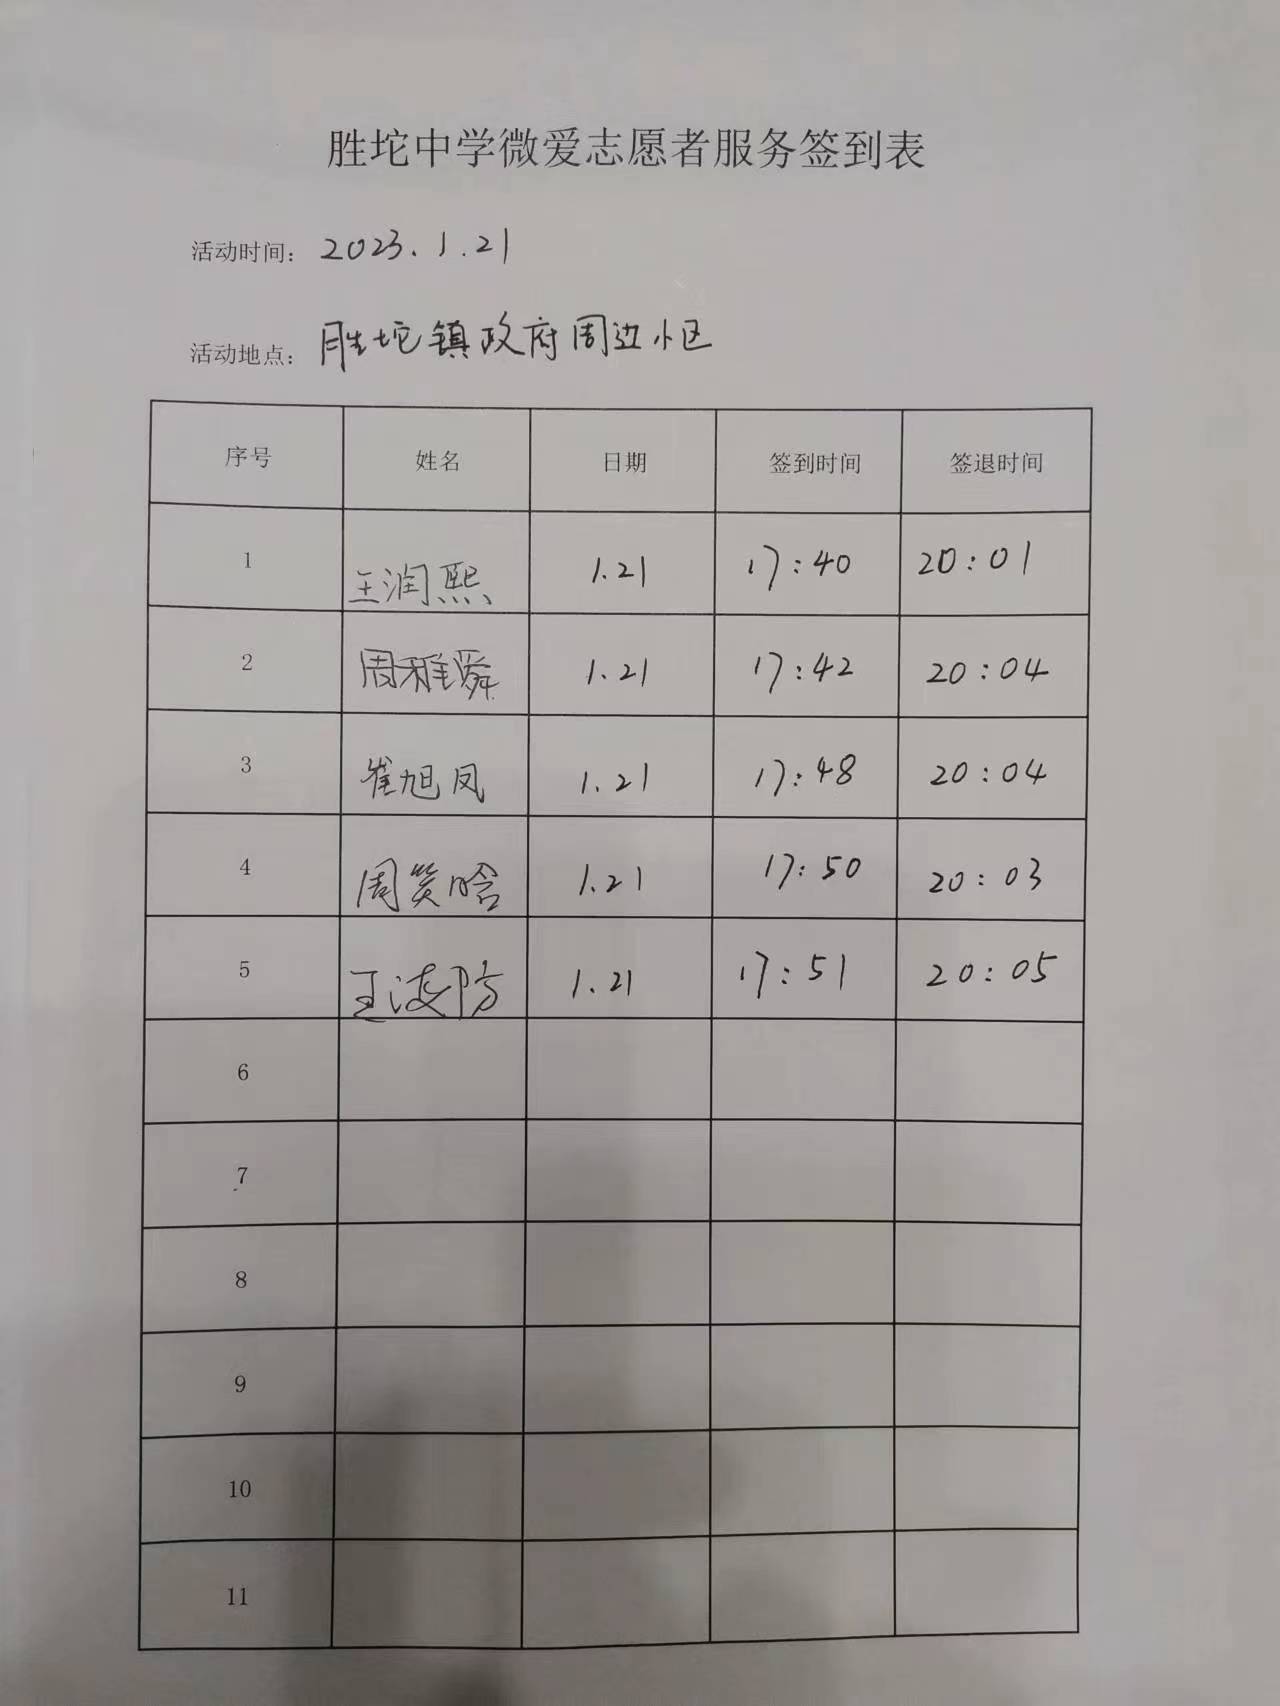 胜坨中学微爱志愿者服务签到表
活动时间：2023.1.21
活动地点：胜坨镇政府周边小区
序号 姓名 日期 签到时间 签退时间
1 王润熙 1.21 17:40 20:01
2 周雅舜 1.21 17:42 20:04
3 崔旭凤 1.21 17:48 20:04
4 周笑晗 1.21 17:50 20:03
5 王凌防 1.21 17:51 20:05
6
7
8
9
10
11